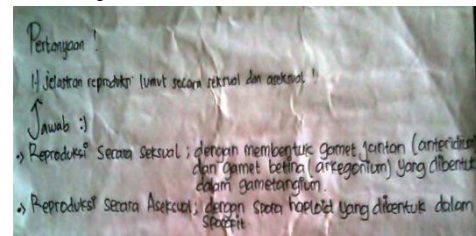 Pertanyaan !
1.) Jelaskan reproduksi lumut secara seksual dan aseksual !
Jawab :)
•) Reproduksi Secara Seksual ; dengan membentuk gamet jantan (anteridium
dan gamet betina (arkegonium) yang dibentuk
dalam gametangium.
•) Reproduksi secara Aseksual; dengan spora haploid yang dibentuk dalam